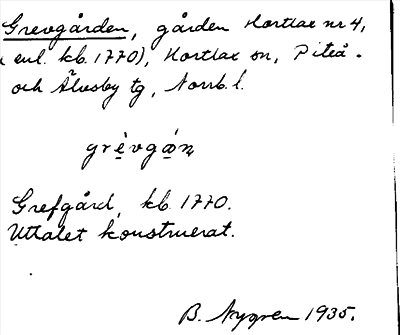 Grevgården, gården Hortlax nr 4,
(enl. kb. 1770), Hortlax sn, Piteå-
och Älvsby tg, Norrb. l.
grèvgán
Grefgård, kb. 1770.
Uttalet konstruerat.
B. Nygren 1935.